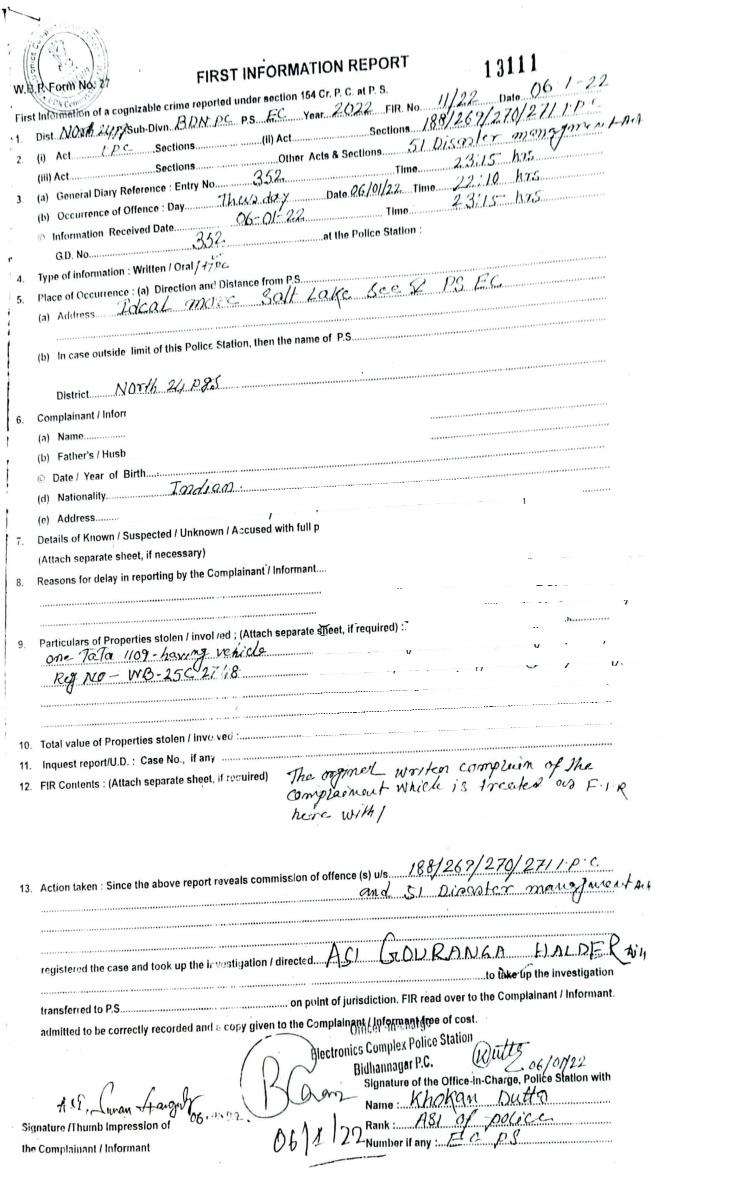 FIRST INFORMATION REPORT
13111
W.B.P. Form No. 27
First Information of a cognizable crime reported under section 154 Cr. P. C. at P. S.
1. Dist. North 24 pgs Sub-Divn. BDN PC P.S. EC Year 2022 FIR. No. 11/22 Date 06 1-22
2. (i) Act IPC Sections (ii) Act Sections 188/269/270/271 I.P.C
(iii) Act Sections Other Acts & Sections 51 Disaster managment Act
3. (a) General Diary Reference : Entry No. 352 Time 23:15 hrs
(b) Occurrence of Offence : Day Thusday Date 06/01/22 Time 22:10 hrs
© Information Received Date 06-01-22 Time 23:15 hrs
G.D. No. 352 at the Police Station :
4. Type of information : Written / Oral / type
5. Place of Occurrence : (a) Direction and Distance from P.S.
(a) Address Ideal more Salt Lake Sec V PS EC
(b) In case outside limit of this Police Station, then the name of P.S.
District North 24 pgs
6. Complainant / Infor
(a) Name
(b) Father's / Husb
© Date / Year of Birth
(d) Nationality Indian.
(e) Address
7. Details of Known / Suspected / Unknown / Accused with full p
(Attach separate sheet, if necessary)
8. Reasons for delay in reporting by the Complainant / Informant
9. Particulars of Properties stolen / involved ; (Attach separate sheet, if required) :
one TaTa 1109 - having vehicle
Reg No - WB-25C
10. Total value of Properties stolen / Invoved :
11. Inquest report/U.D. : Case No., if any
12. FIR Contents : (Attach separate sheet, if required) The orginel written complain of the
complainent which is treated as F.I.R
here with/
13. Action taken : Since the above report reveals commission of offence (s) u/s 188/269/270/271 I.P.C
and 51 Disaster mangment Act
registered the case and took up the investigation / directed ASI GOURANGA HALDER
to take up the investigation
transferred to P.S. on point of jurisdiction. FIR read over to the Complainant / Informant.
admitted to be correctly recorded and a copy given to the Complainant / Informant free of cost.
Officer-in-charge
Electronics Complex Police Station
Bidhannagar P.C.
06/01/22
Signature of the Office-In-Charge, Police Station with
Name : Khokan Dutta
Rank : ASI of police
Number if any : EC PS
06/1/22
ASI,
Signature /Thumb Impression of
the Complainant / Informant